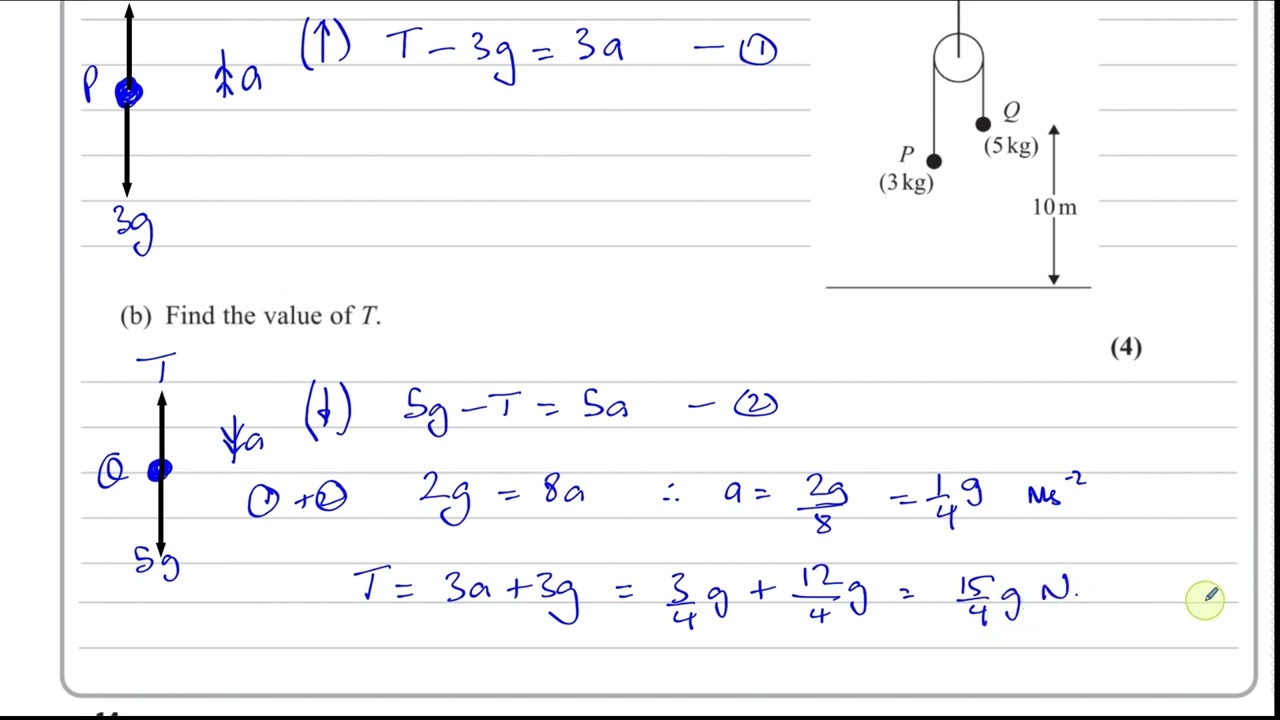 (↑) T − 3g = 3a — ①
P
a
3g
Q
(5 kg)
P
(3 kg)
10 m
(b) Find the value of T.
(4)
T
(↓) 5g − T = 5a — ②
a
Q
① + ② 2g = 8a ∴ a = 2g/8 = 1/4 g ms⁻²
5g
T = 3a + 3g = 3/4 g + 12/4 g = 15/4 g N.